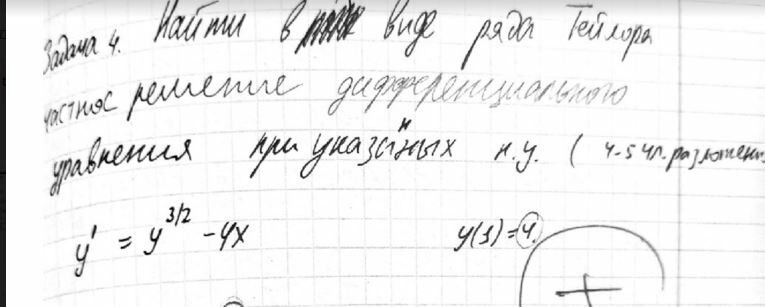 Задача 4. Найти в виде ряда Тейлора
частное решение дифференциального
уравнения при указанных н.у. ( 4-5 чл. разложения
y' = y^{3/2} - 4x y(1)=4.